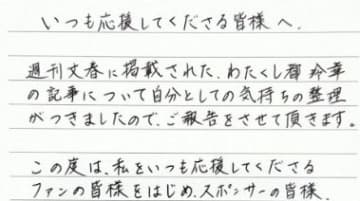 いつも応援してくださる皆様へ、
週刊文春に掲載された、わたくし都 玲華
の記事について自分としての気持ちの整理
がつきましたので、ご報告をさせて頂きます。
この度は、私をいつも応援してくださる
ファンの皆様をはじめ、スポンサーの皆様、